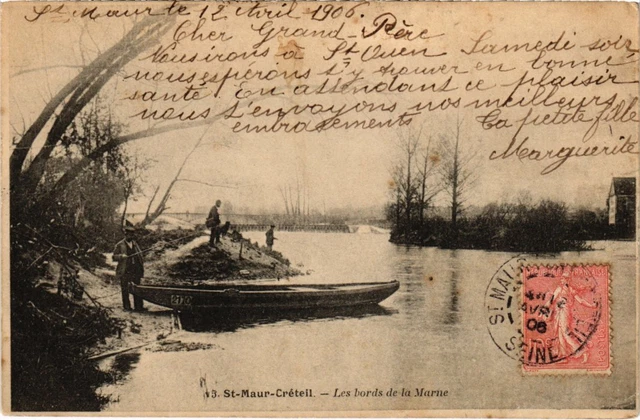 St Maur le 12 Avril 1906.
Cher Grand-Père
Nous irons à St Ouen Samedi soir
nous espérons t'y trouver en bonne
santé En attendant ce plaisir
nous t'envoyons nos meilleurs
embrassements Ta petite fille
Marguerite
ST MAUR
AVR
06
SEINE
213. St-Maur-Créteil. — Les bords de la Marne